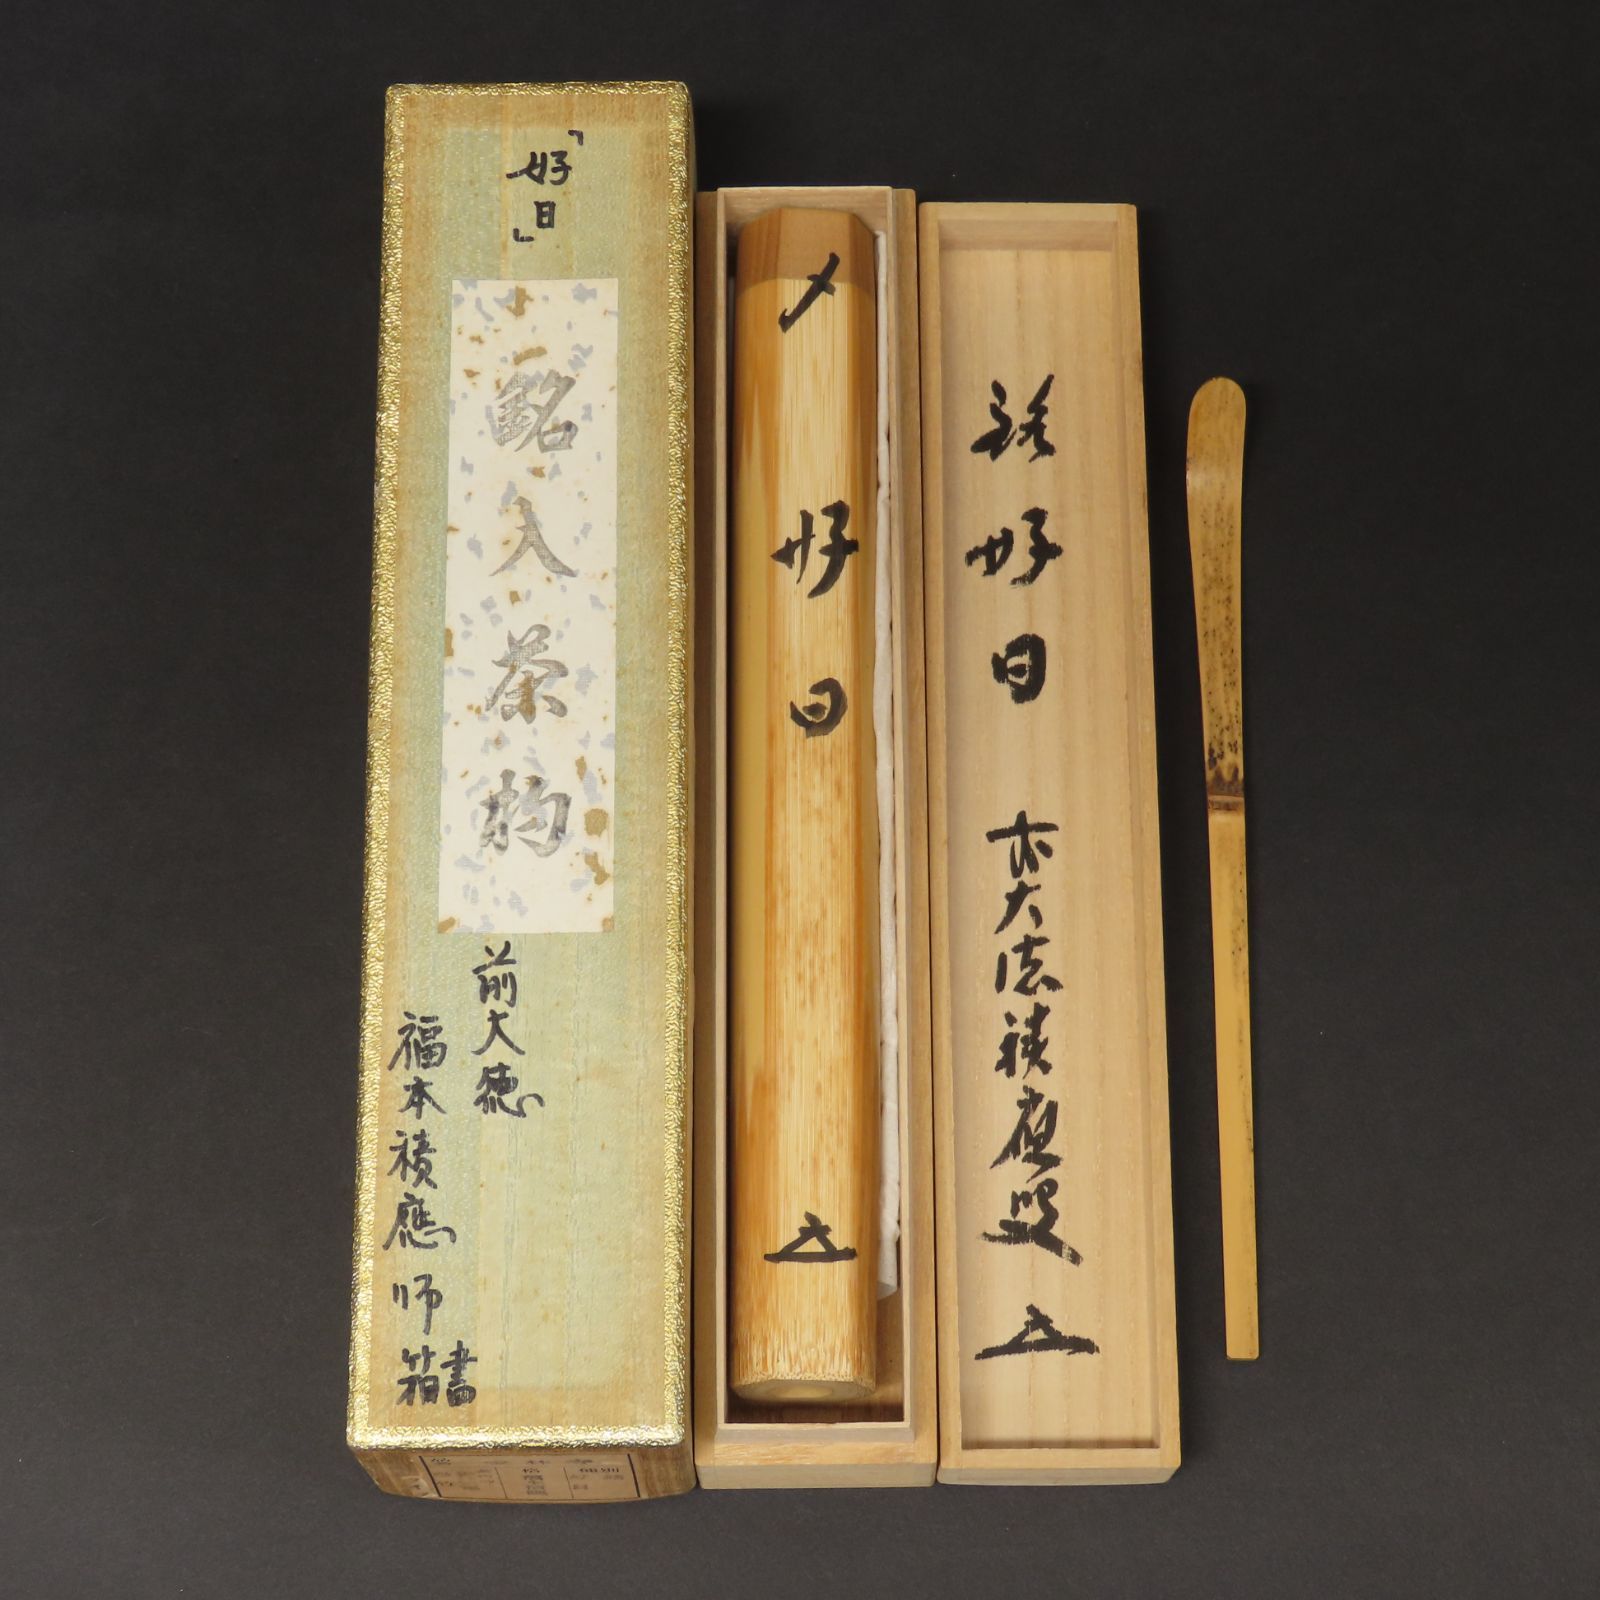 「好日」
銘入茶杓
前大徳
福本積應師
箱書
〆
好日
銘好日
前大徳積應叟